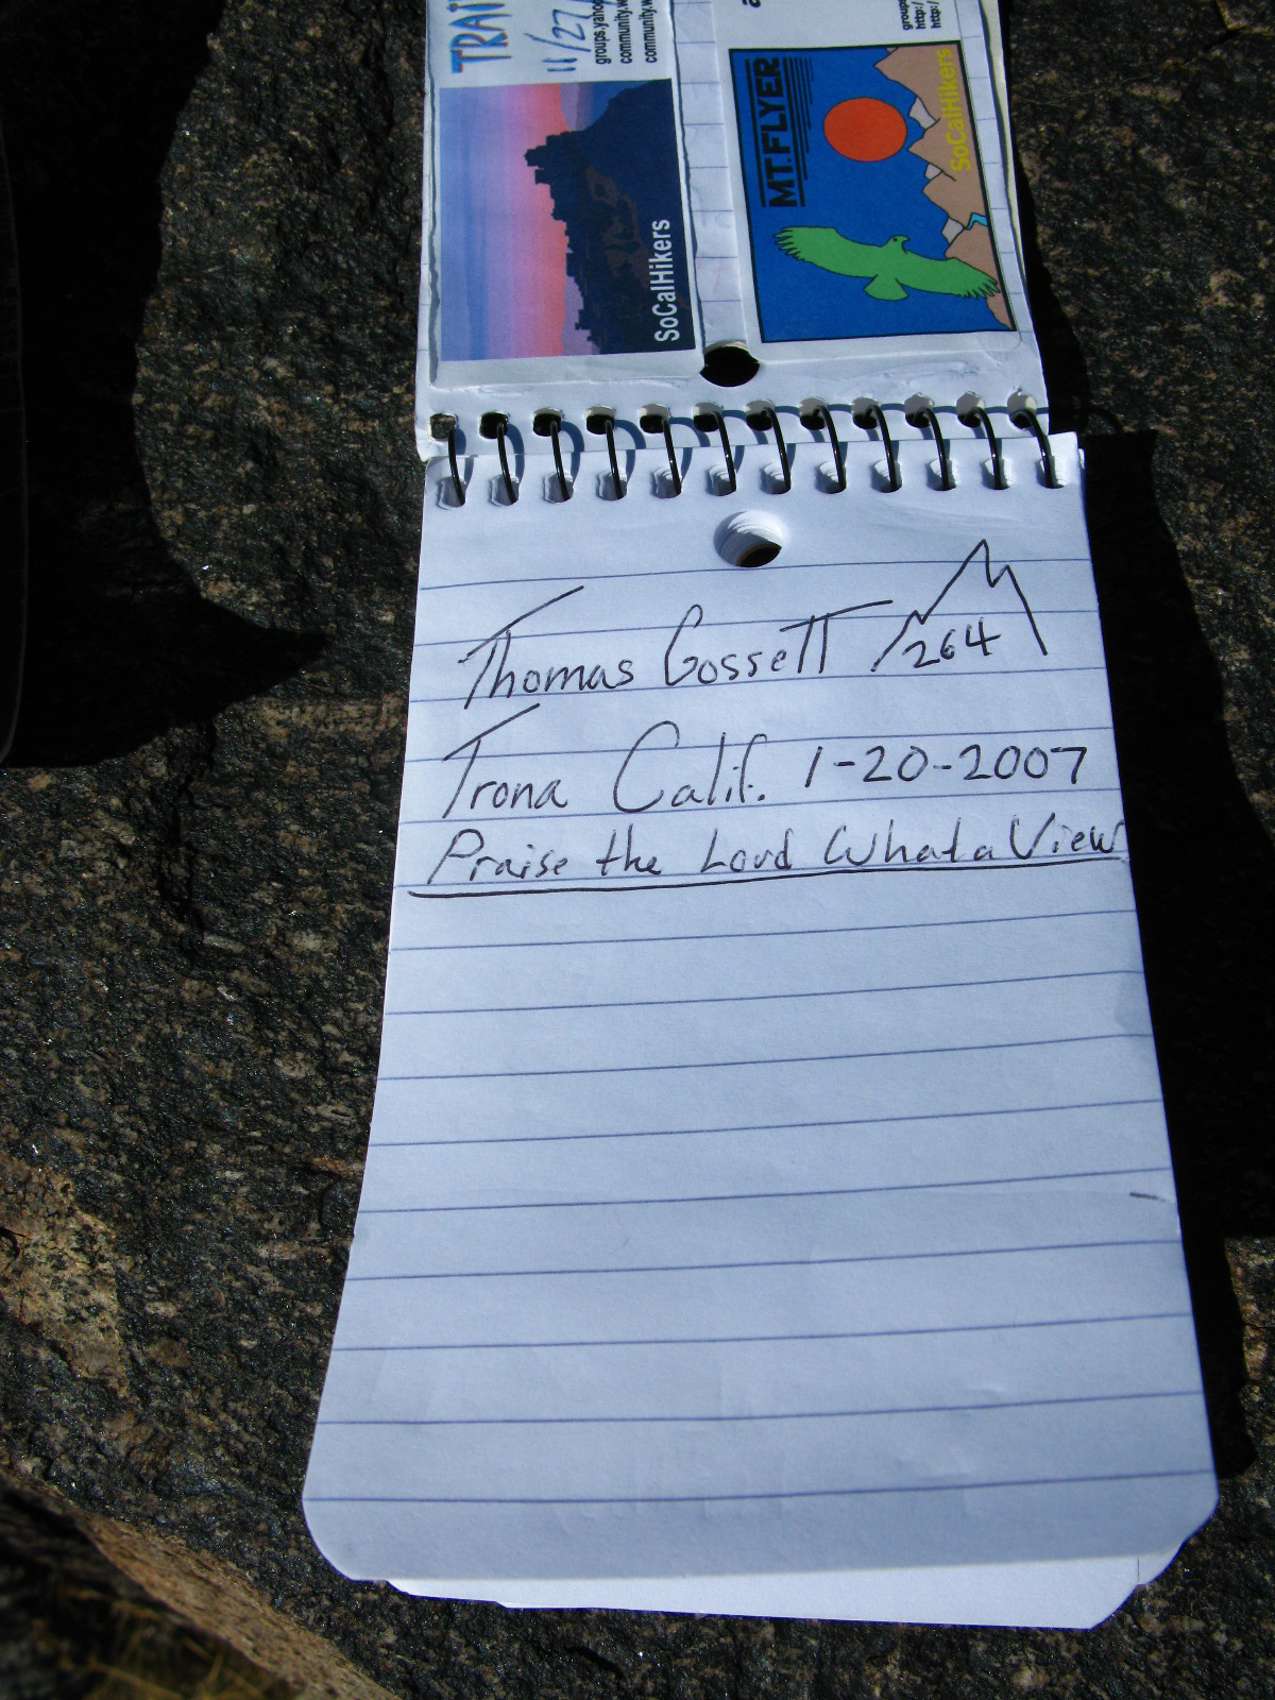 TRAI
11/27/
groups.yaho
community.w
community.w
SoCalHikers
MT.FLYER
SoCalHikers
group
http:/
http:/
Thomas Gossett 264
Trona Calif. 1-20-2007
Praise the Lord What a View